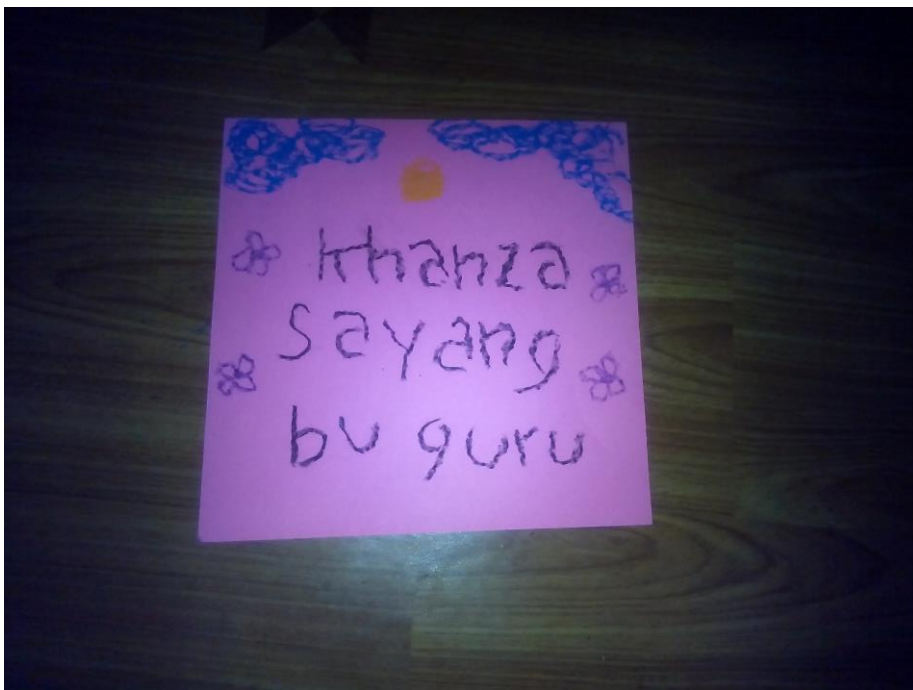 Khanza
Sayang
bu guru